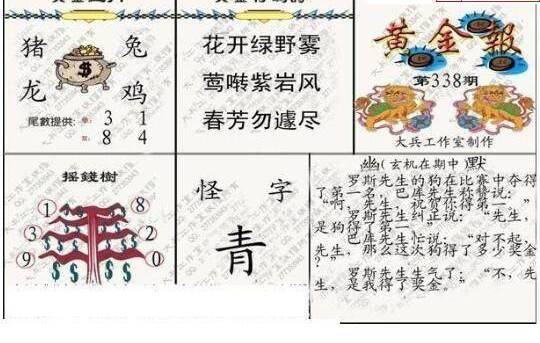 猪 兔
龙 鸡
尾數提供: 單: 3 1
雙: 8 4
花开绿野雾
莺啭紫岩风
春芳勿遽尽
黄金報
第338期
大兵工作室制作
摇錢樹
1 8
3 2
9 0
怪 字
青
幽(玄机在期中)默
罗斯先生的狗在比赛中夺得
了第一名，巴库先生称赞说：
“啊，先生，祝贺你得第一。”
罗斯先生纠正说：“先生，
是狗得了第一。”
巴库先生忙说：“对不起，
先生，那么这次狗得了多少奖金
？”
罗斯先生生气了：“不，先
生，是我得了奖金。”